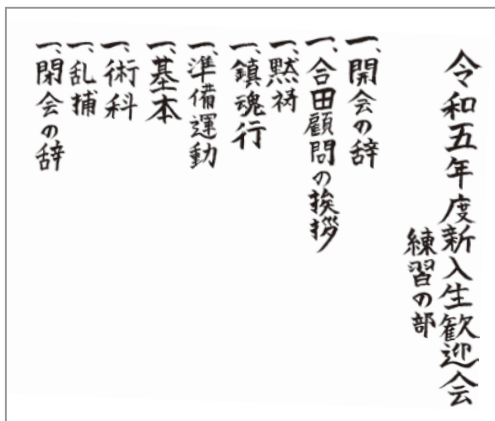 令和五年度新入生歓迎会
練習の部
一、開会の辞
一、合田顧問の挨拶
一、黙祷
一、鎮魂行
一、準備運動
一、基本
一、術科
一、乱捕
一、閉会の辞